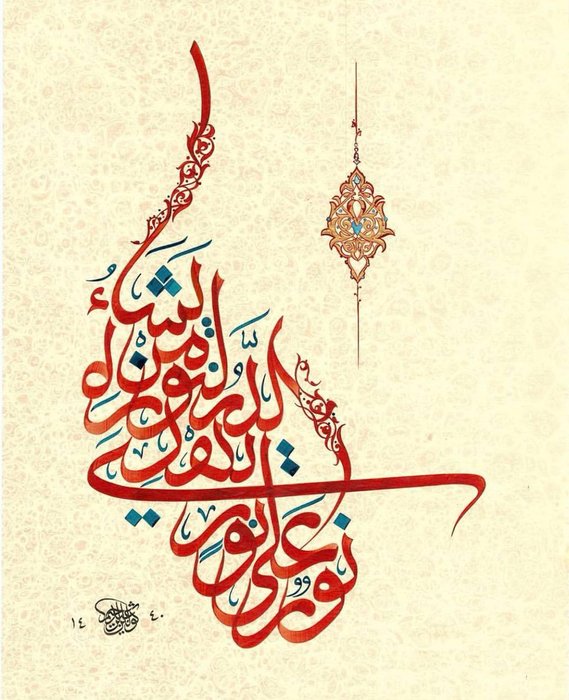 نُورٌ عَلَىٰ نُورٍ
يَهْدِي اللَّهُ لِنُورِهِ مَنْ يَشَاءُ
١٤٤٠